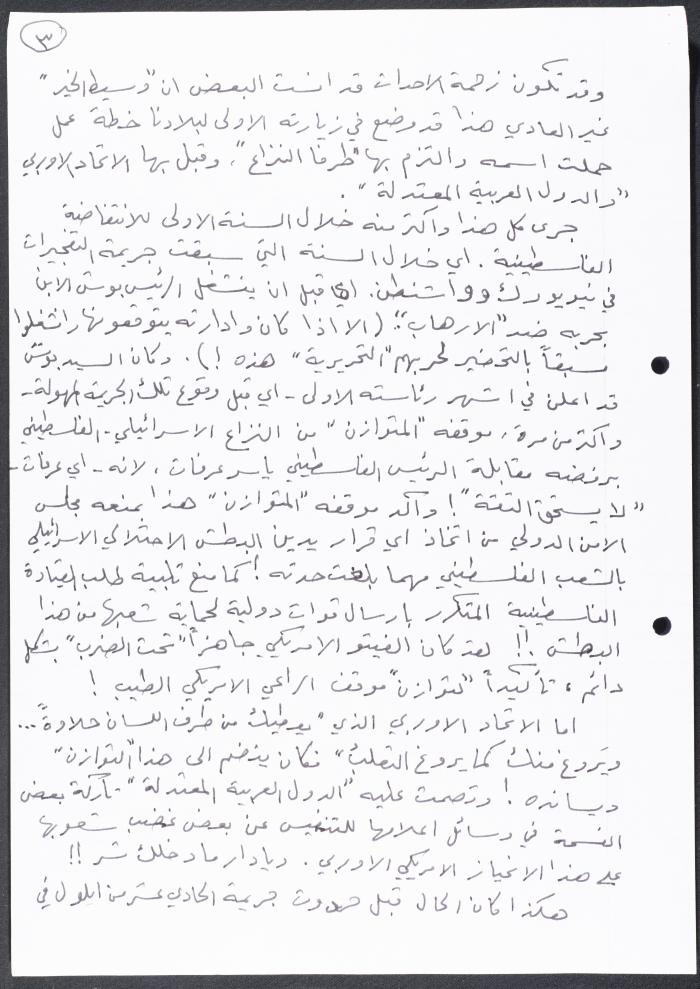 ٣
وقد تكون زحمة الاحداث قد انست البعض ان "وسيط الخير"
غير العادي هذا قد وضع في زيارته الاولى لبلادنا خطة عمل
حملت اسمه والتزم بها "طرفا النزاع"، وقبل بها الاتحاد الاوربي
"والدول العربية المعتدلة".
جرى كل هذا واكثر منه خلال السنة الاولى للانتفاضة
الفلسطينية. اي خلال السنة التي سبقت جريمة التفجيرات
في نيويورك وواشنطن. اي قبل ان ينشغل الرئيس بوش الابن
بحربه ضد "الارهاب". (الا اذا كان وادارته يتوقعونها وانشغلوا
مسبقاً بالتحضير لحربهم "التحريرية" هذه !). وكان السيد بوش
قد اعلن في اشهر رئاسته الاولى - اي قبل وقوع تلك الجريمة المهولة -
واكثر من مرة، موقفه "المتوازن" من النزاع الاسرائيلي - الفلسطيني
برفضه مقابلة الرئيس الفلسطيني ياسر عرفات، لانه - اي عرفات -
"لا يستحق الثقة" ! واكد موقفه "المتوازن" هذا بمنعه مجلس
الامن الدولي من اتخاذ اي قرار يدين البطش الاحتلالي الاسرائيلي
بالشعب الفلسطيني مهما بلغت حدته ! كما منع تلبية طلب القيادة
الفلسطينية المتكرر بارسال قوات دولية لحماية شعبها من هذا
البطش !! لقد كان الفيتو الامريكي جاهزاً "تحت الضرب" بشكل
دائم، تأكيداً "لتوازن" موقف الراعي الامريكي الطيب !
اما الاتحاد الاوربي الذي "يعطيك من طرف اللسان حلاوةً...
ويَروغ منك كما يروغ الثعلبُ" فكان ينضم الى هذا "التوازن"
ويسانده ! وتصمت عليه "الدول العربية المعتدلة" تاركة بعض
الفسحة في وسائل اعلامها للتنفيس عن بعض غضب شعوبها
على هذا الانحياز الامريكي الاوربي. ويادار ما دخلك شر !!
هكذا كان الحال قبل حدوث جريمة الحادي عشر من ايلول في